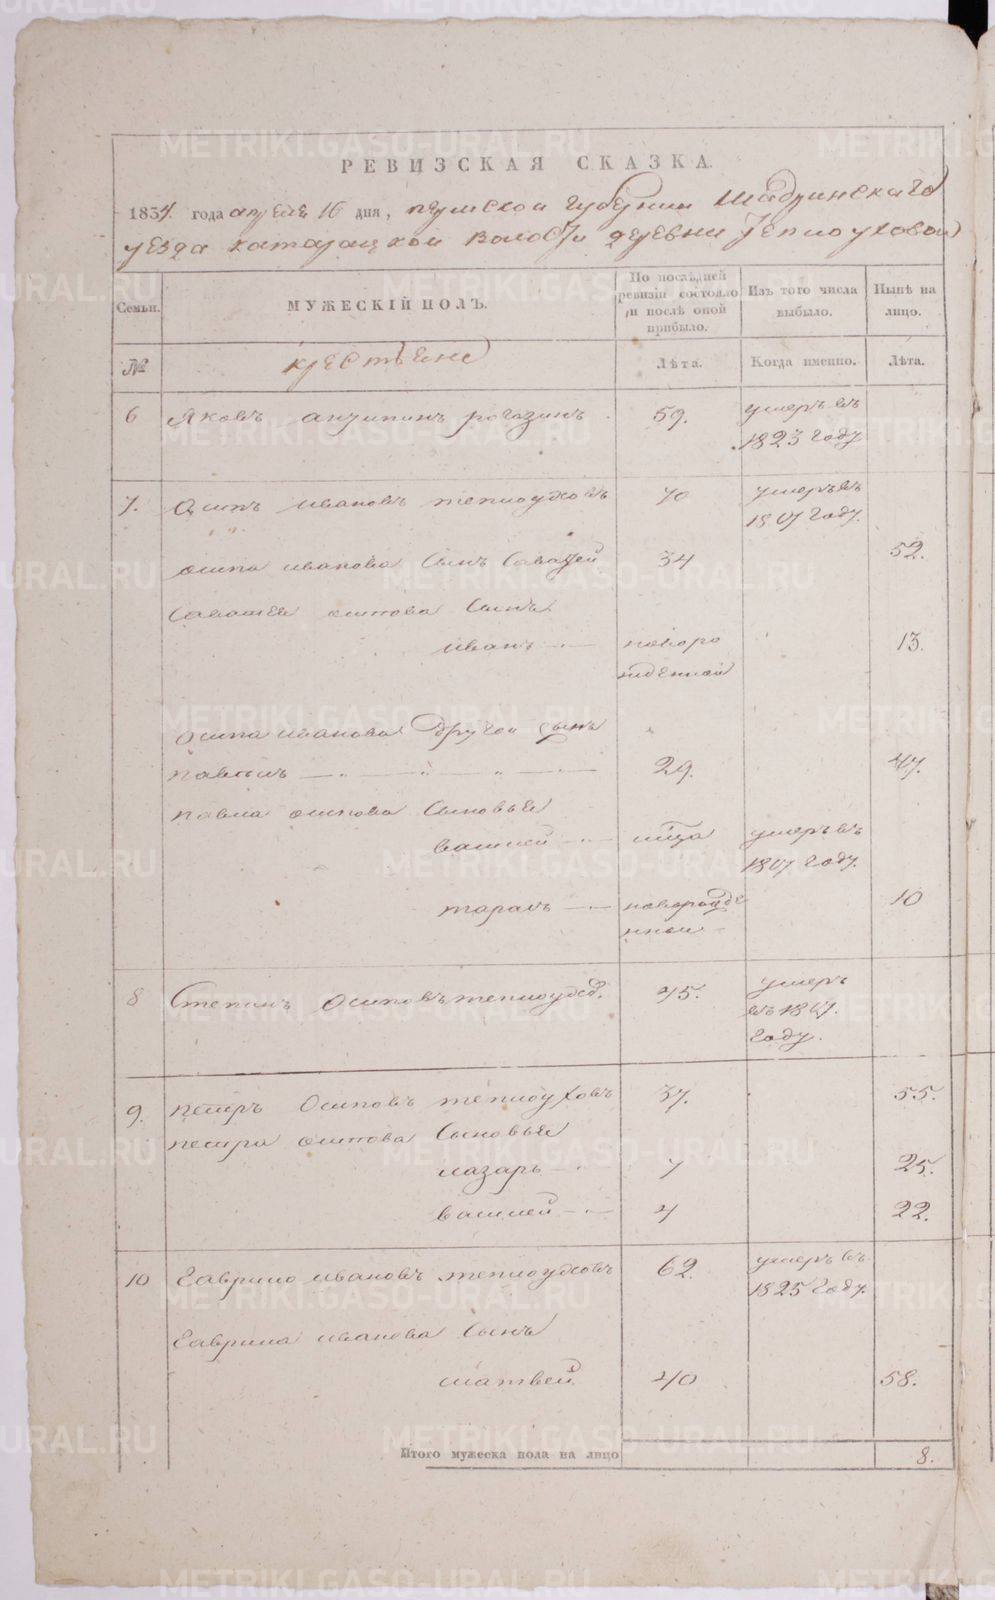 РЕВИЗСКАЯ СКАЗКА.
1834 года апреля 16 дня, пермской губернии Шадринскаго
уезда катарацкой волости деревни Теплоуховой
Семьи. МУЖЕСКІЙ ПОЛЪ. По послѣдней ревизіи состояло и послѣ оной прибыло. Изъ того числа выбыло. Нынѣ на лицо.
№ крестьяне Лѣта. Когда именно. Лѣта.
6 Яковъ антипинъ рогозинъ 59. умеръ въ
1823 году
7. Осипъ ивановъ теплоуховъ 70 умеръ въ
1807 году.
осипа иванова Сынъ Саватей 34 52.
Саватея осипова Сынъ
иванъ новоро 13.
жденной
осипа иванова другой сынъ
павелъ 29. 47.
павла осипова Сыновья
василей умеръ въ
1807 году.
тарасъ новорожде 10
нной
8 Степанъ Осиповъ теплоухов. 45. умеръ
въ 1807.
году.
9. петръ Осиповъ теплоуховъ 37. 55.
петра осипова Сыновья
лазарь 7 25.
василей 4 22.
10 Гаврило ивановъ теплоуховъ 62. умеръ въ
1825 году.
Гаврила иванова Сынъ
матвей 40 58.
Итого мужеска пола на лицо 8.
METRIKI.GASO-URAL.RU